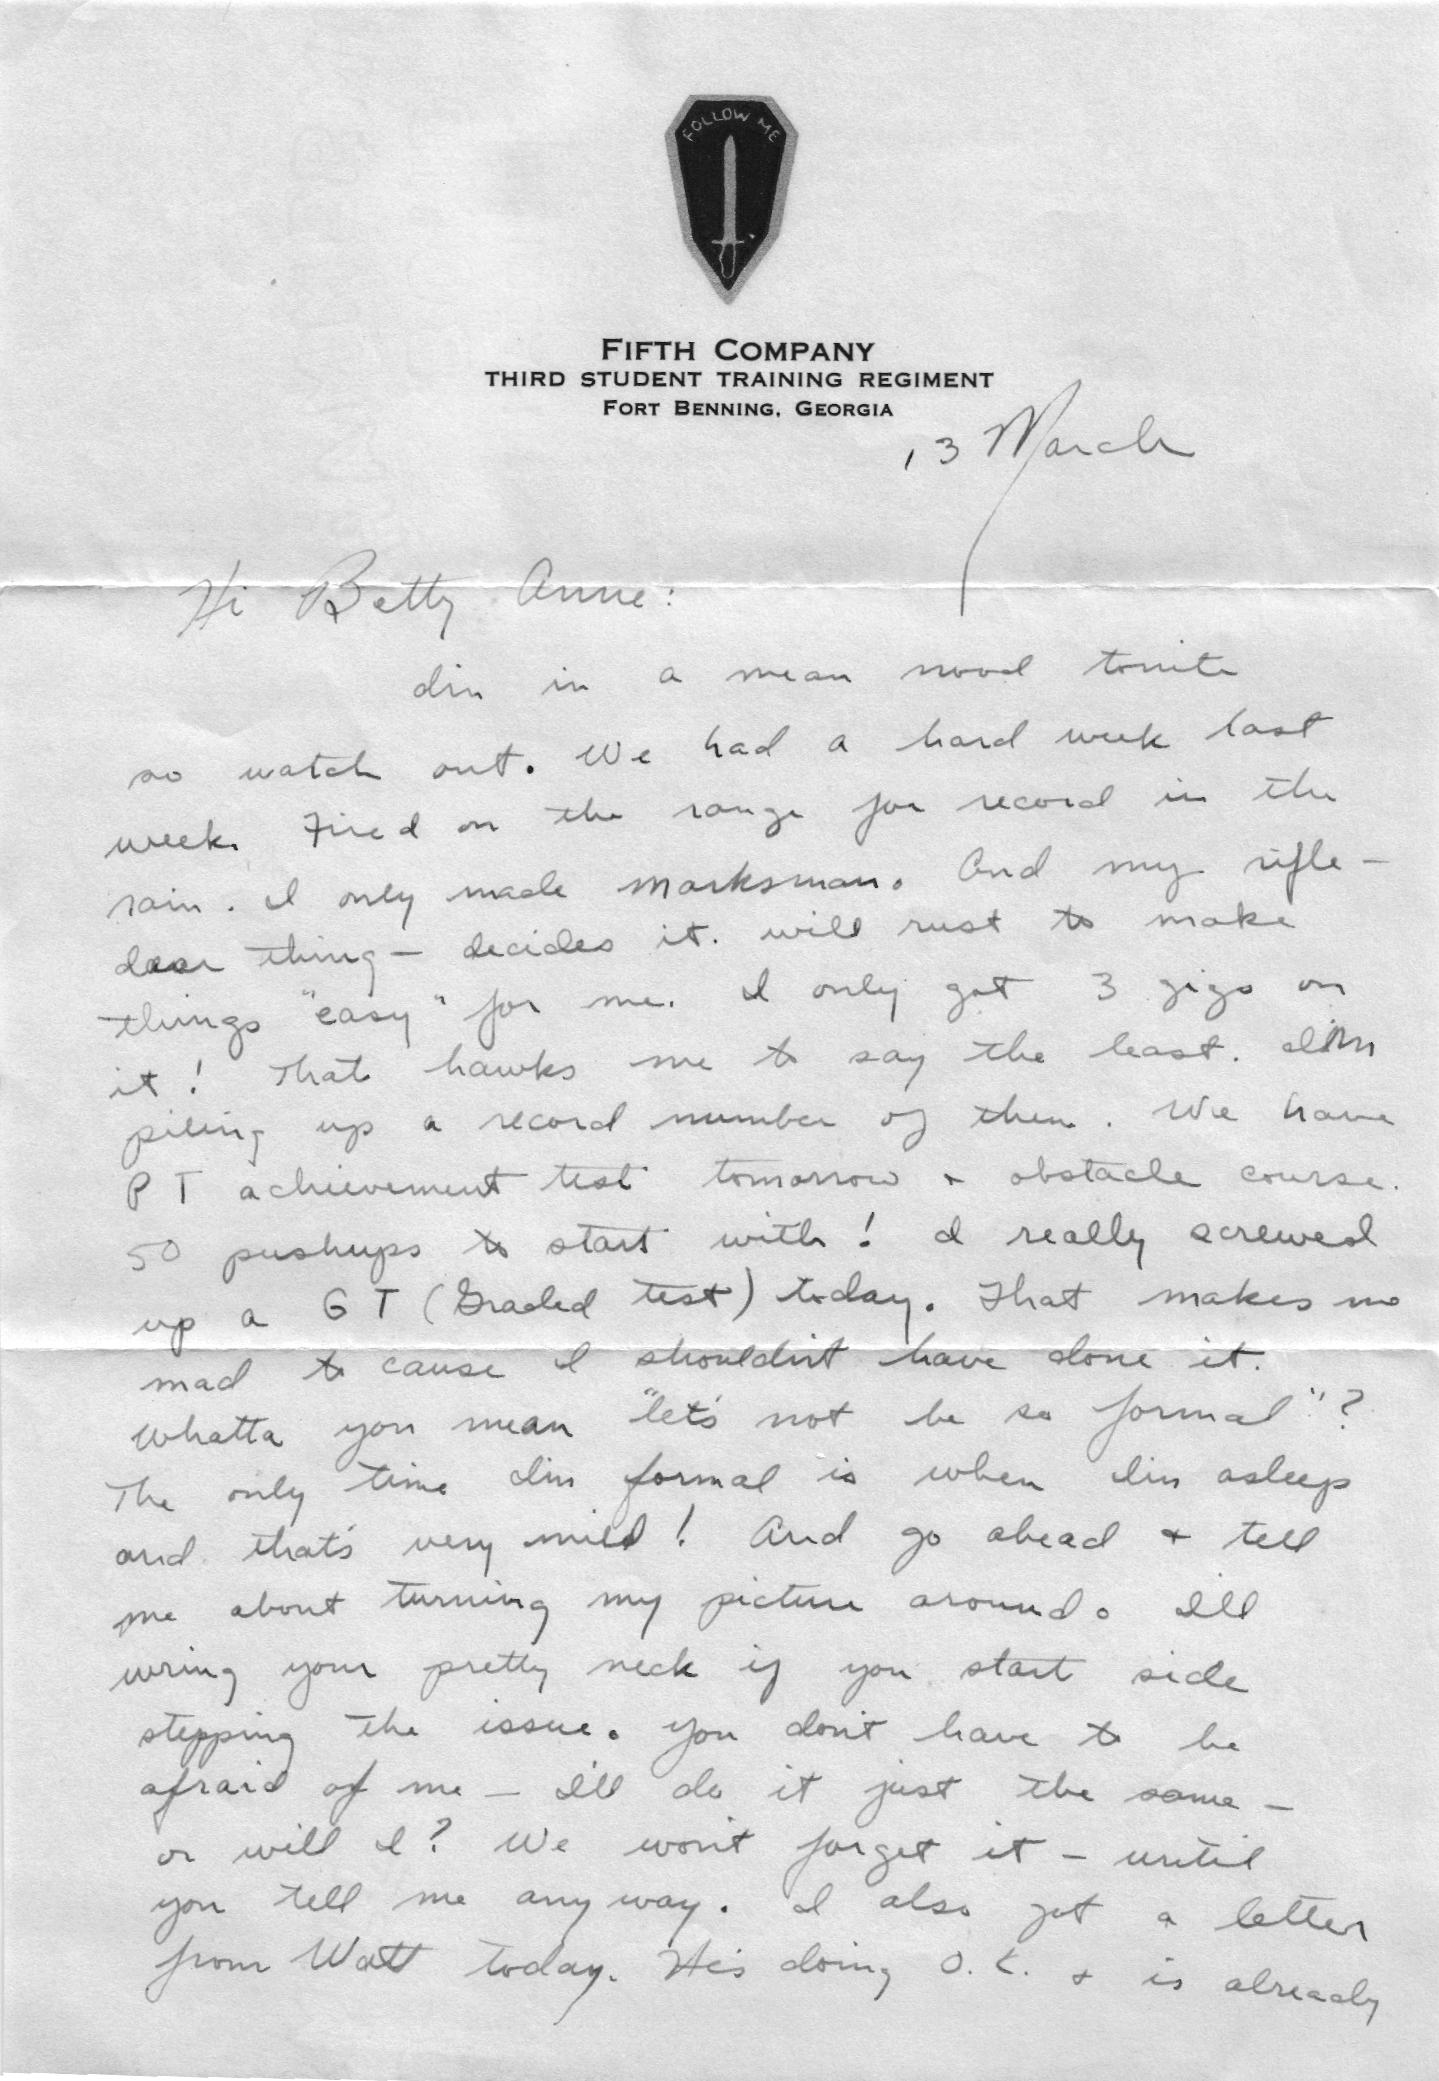 FOLLOW ME
FIFTH COMPANY
THIRD STUDENT TRAINING REGIMENT
FORT BENNING, GEORGIA
13 March
Hi Betty Anne:
I'm in a mean mood tonite
so watch out. We had a hard week last
week. Fired on the range for record in the
rain. I only made marksman. And my rifle -
dear thing - decides it will rust to make
things "easy" for me. I only got 3 gigs on
it! That hawks me to say the least. I'm
piling up a record number of them. We have
P T achievement test tomorrow + obstacle course.
50 pushups to start with! I really screwed
up a G T (Graded test) today. That makes me
mad to cause I shouldn't have done it.
Whatta you mean "let's not be so formal"?
The only time I'm formal is when I'm asleep
and that's very mild! And go ahead + tell
me about turning my picture around. I'll
wring your pretty neck if you start side
stepping the issue. You don't have to be
afraid of me - I'll do it just the same -
or will I? We won't forget it - until
you tell me any way. I also got a letter
from Watt today. He's doing O.K. + is already